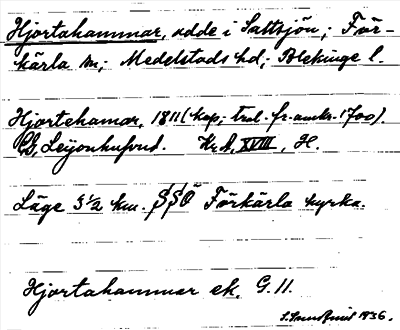 Hjortahammar, udde i Saltsjön; För-
kärla sn; Medelstads hd; Blekinge l.
Hjortehamar, 1811 (kop; trol. fr. omkr. 1700).
CG, Leijonhufvud. Kr.A. XVIII, H.
Läge 3 1/2 km. SSÖ Förkärla kyrka.
Hjortahammar ek. G. 11.
1936.